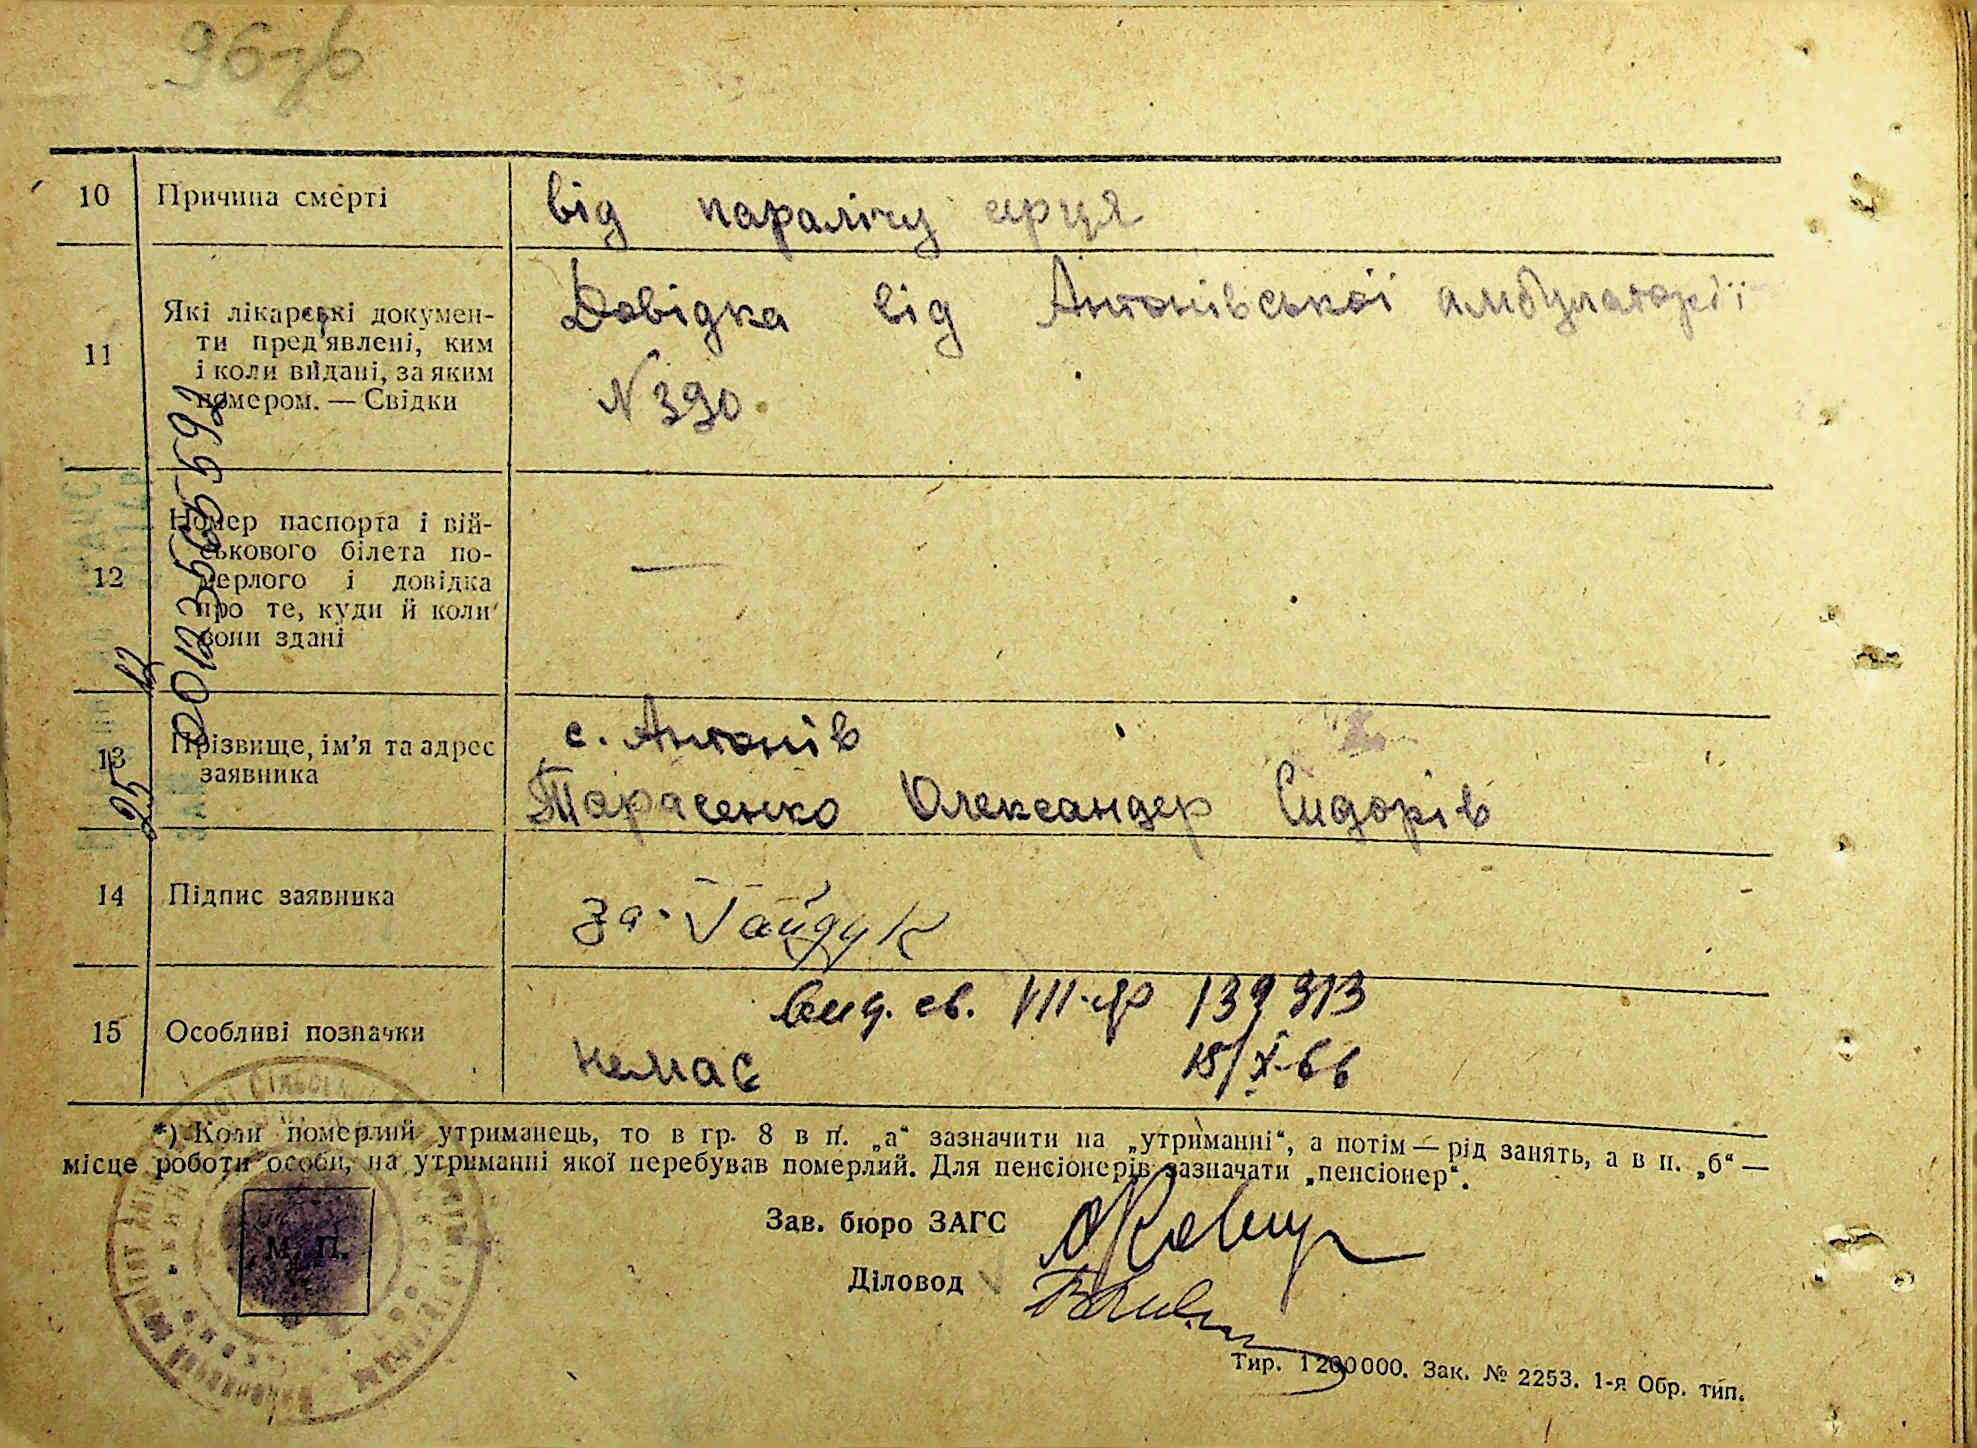 10 Причина смерті від паралічу серця
11 Які лікарські докумен-
ти пред'явлені, ким
і коли видані, за яким
номером. — Свідки
Довідка від Антонівської амбулаторії
N 390
12 Номер паспорта і вій-
ськового білета по-
мерлого і довідка
про те, куди й коли
вони здані
—
13 Прізвище, ім'я та адрес
заявника
с. Антонів
Тарасенко Олександер Сидорів
14 Підпис заявника За. Гайдук
15 Особливі позначки
Вид. св. VII-ЯР 139313
немає 18/X-66
*) Коли померлий утриманець, то в гр. 8 в п. „а“ зазначити на „утриманні“, а потім — рід занять, а в п. „б“ —
місце роботи особи, на утриманні якої перебував померлий. Для пенсіонерів зазначати „пенсіонер“.
М. П.
Зав. бюро ЗАГС
Діловод
Тир. 1200000. Зак. № 2253. 1-я Обр. тип.